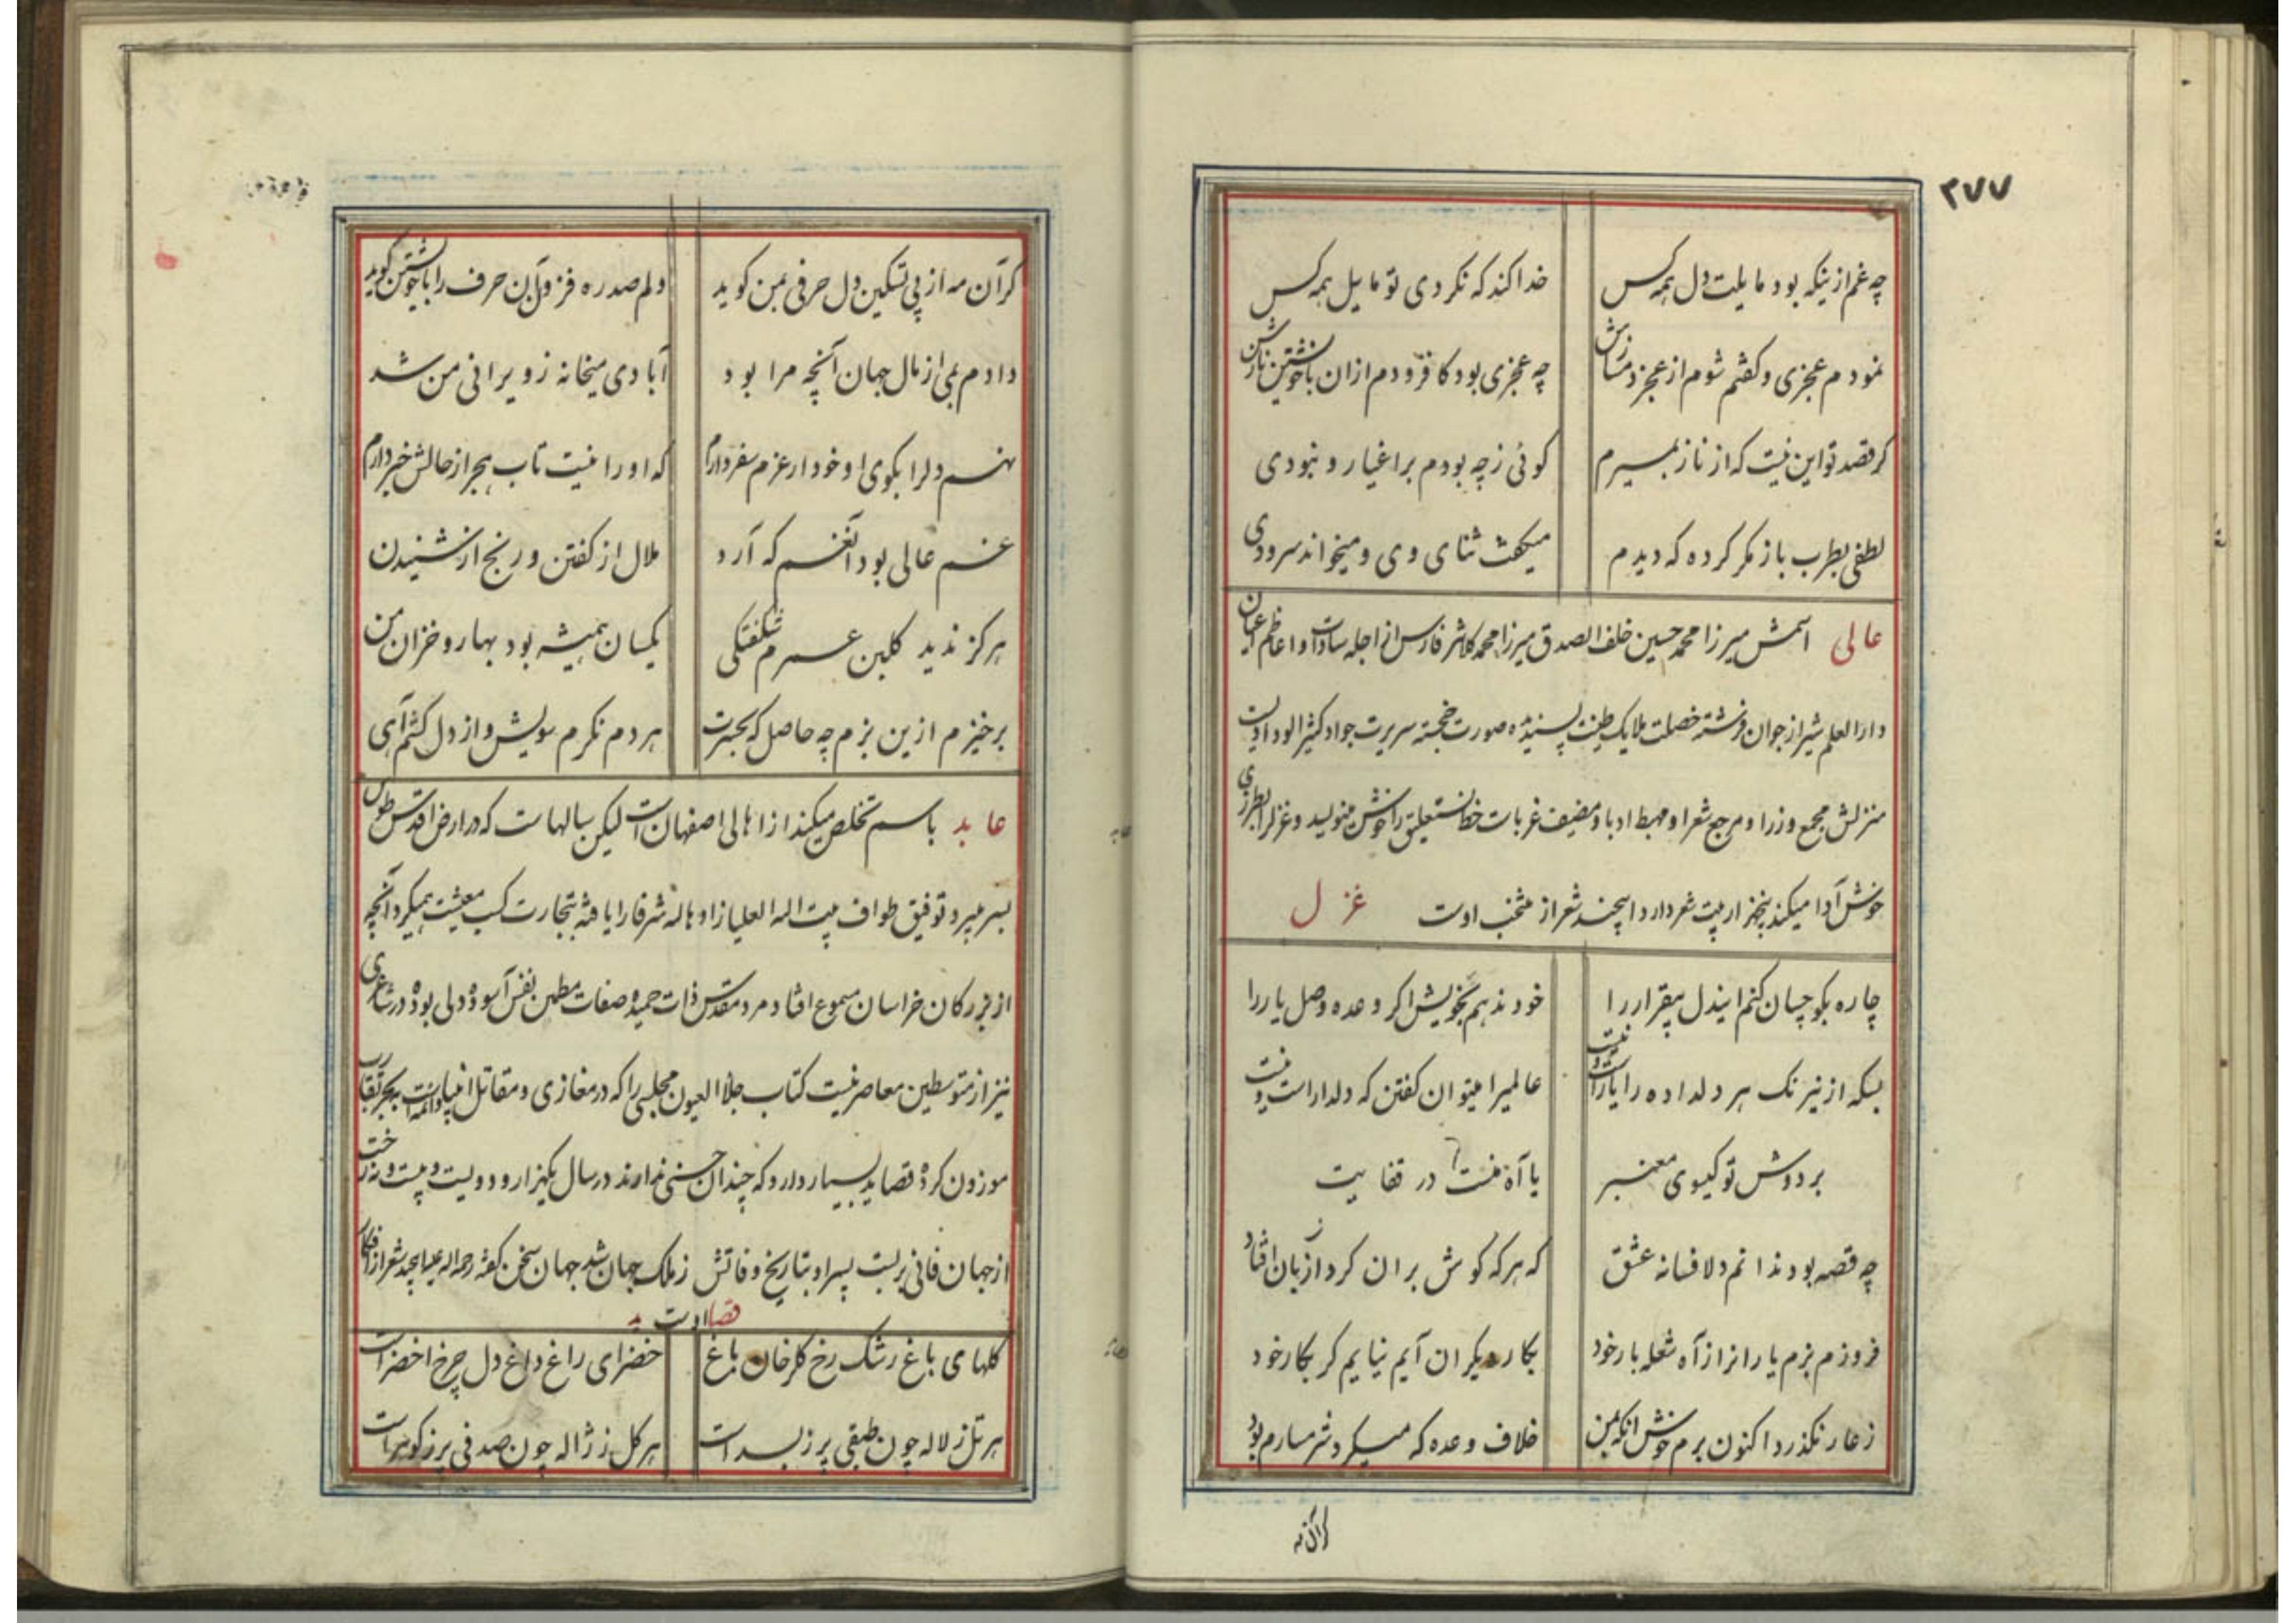 ۲۷۷
چه غم ازینکه بود مایلت دل همه کس خدا کند که نکردی تو مایل همه کس
نمودم عجزی و کفتم شوم از عجز دمسازش چه عجزی بود کافزودم ازان باخویشتن نازش
کر قصد تو این نیست که از ناز بمیرم کوئی ز چه بودم بر اغیار و نبودی
لطفی بطرب باز مکر کرده که دیدم میکفت ثنای وی و میخواند سرودی
عالی اسمش میرزا محمد حسین خلف الصدق میرزا محمد کلانتر فارس از اجله سادات و اعاظم اعیان
دارالعلم شیراز جوان فرشته خصلت ملایک طینت پسندیده صورت خجسته سریرت جواد کثیرالوداد است
منزلش مجمع وزرا و مرجع شعرا و مهبط ادبا و مضیف غربات خط نستعلیق را خوش مینویسد و غزلرا بطرزی
خوش ادا میکند پنجهزار بیت شعر دارد اینچند شعر از منتخب اوست غزل
چاره بکو چسان کنم ایندل بیقرار را خود ندهم بخویش اکر وعده وصل یار را
بسکه از نیرنک هر دلداده را یارست و نیست عالمیرا میتوان کفتن که دلدار است و نیست
بر دوش تو کیسوی معنبر یا آه منست در قفایت
چه قصه بود ندانم دلا فسانه عشق که هر که کوش بران کرد از زبان افتاد
فروزم بزم یارانرا ز آه شعله بار خود بکار دیکران آیم نیایم کر بکار خود
ز عار نکذرد اکنون برم خوش انکه بمن خلاف وعده که میکرد شرمسارم بود
کرآن مه
کرآن مه از پی تسکین دل حرفی بمن کوید دلم صد ره فزون آن حرف را باخویشتن کوید
دادم بمی از مال جهان آنچه مرا بود آبادی میخانه ز ویرانی من شد
نهم دلرا بکوی او خود ار عزم سفر دارم که او را نیست تاب هجر از حالش خبر دارم
غم عالی بود آنغم که آرد ملال از کفتن و رنج از شنیدن
هرکز ندید کلبن عمرم شکفتکی یکسان همیشه بود بهار و خزان من
برخیزم ازین بزم چه حاصل که بحسرت هر دم نکرم سویش و از دل کشم آهی
عابد باسم تخلص میکند از اهالی اصفهان است لیکن سالهاست که در ارض اقدس طوس
بسر میبرد توفیق طواف بیت اله العلیا زاد هاله شرفا را یافته بتجارت کسب معیشت میکرد آنچه
از بزرکان خراسان مسموع افتاد مرد مقدس ذات حمیده صفات مطمئن نفس آسوده دلی بوده در شاعری
نیز از متوسطین معاصرینست کتاب جلاء العیون مجلسی را که در مغازی و مقاتل انبیا و ائمه است ببحر تقارب
موزون کرده قصاید بسیار دارد که چندان حسنی ندارند در سال یکهزار و دویست و بیست و نه رخت
از جهان فانی بربست پسر او بتاریخ وفاتش ز ملک جهان شد جهان سخن کفته رحمه اله علیه اینچند شعر از افکار
اوست قصا ید
کلهای باغ رشک رخ کلرخان باغ خضرای راغ داغ دل چرخ اخضر است
هر تل ز لاله چون طبقی پر ز بسد است هر کل ز ژاله چون صدفی پر ز کوهر است